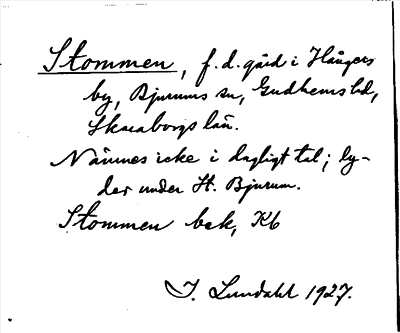 Stommen, f.d. gård i Hångers
by, Bjurums sn, Gudhems hd,
Skaraborgs län.
Nämnes icke i dagligt tal; ly-
der under St. Bjurum.
Stommen bek, Kb
I. Lundahl 1927.